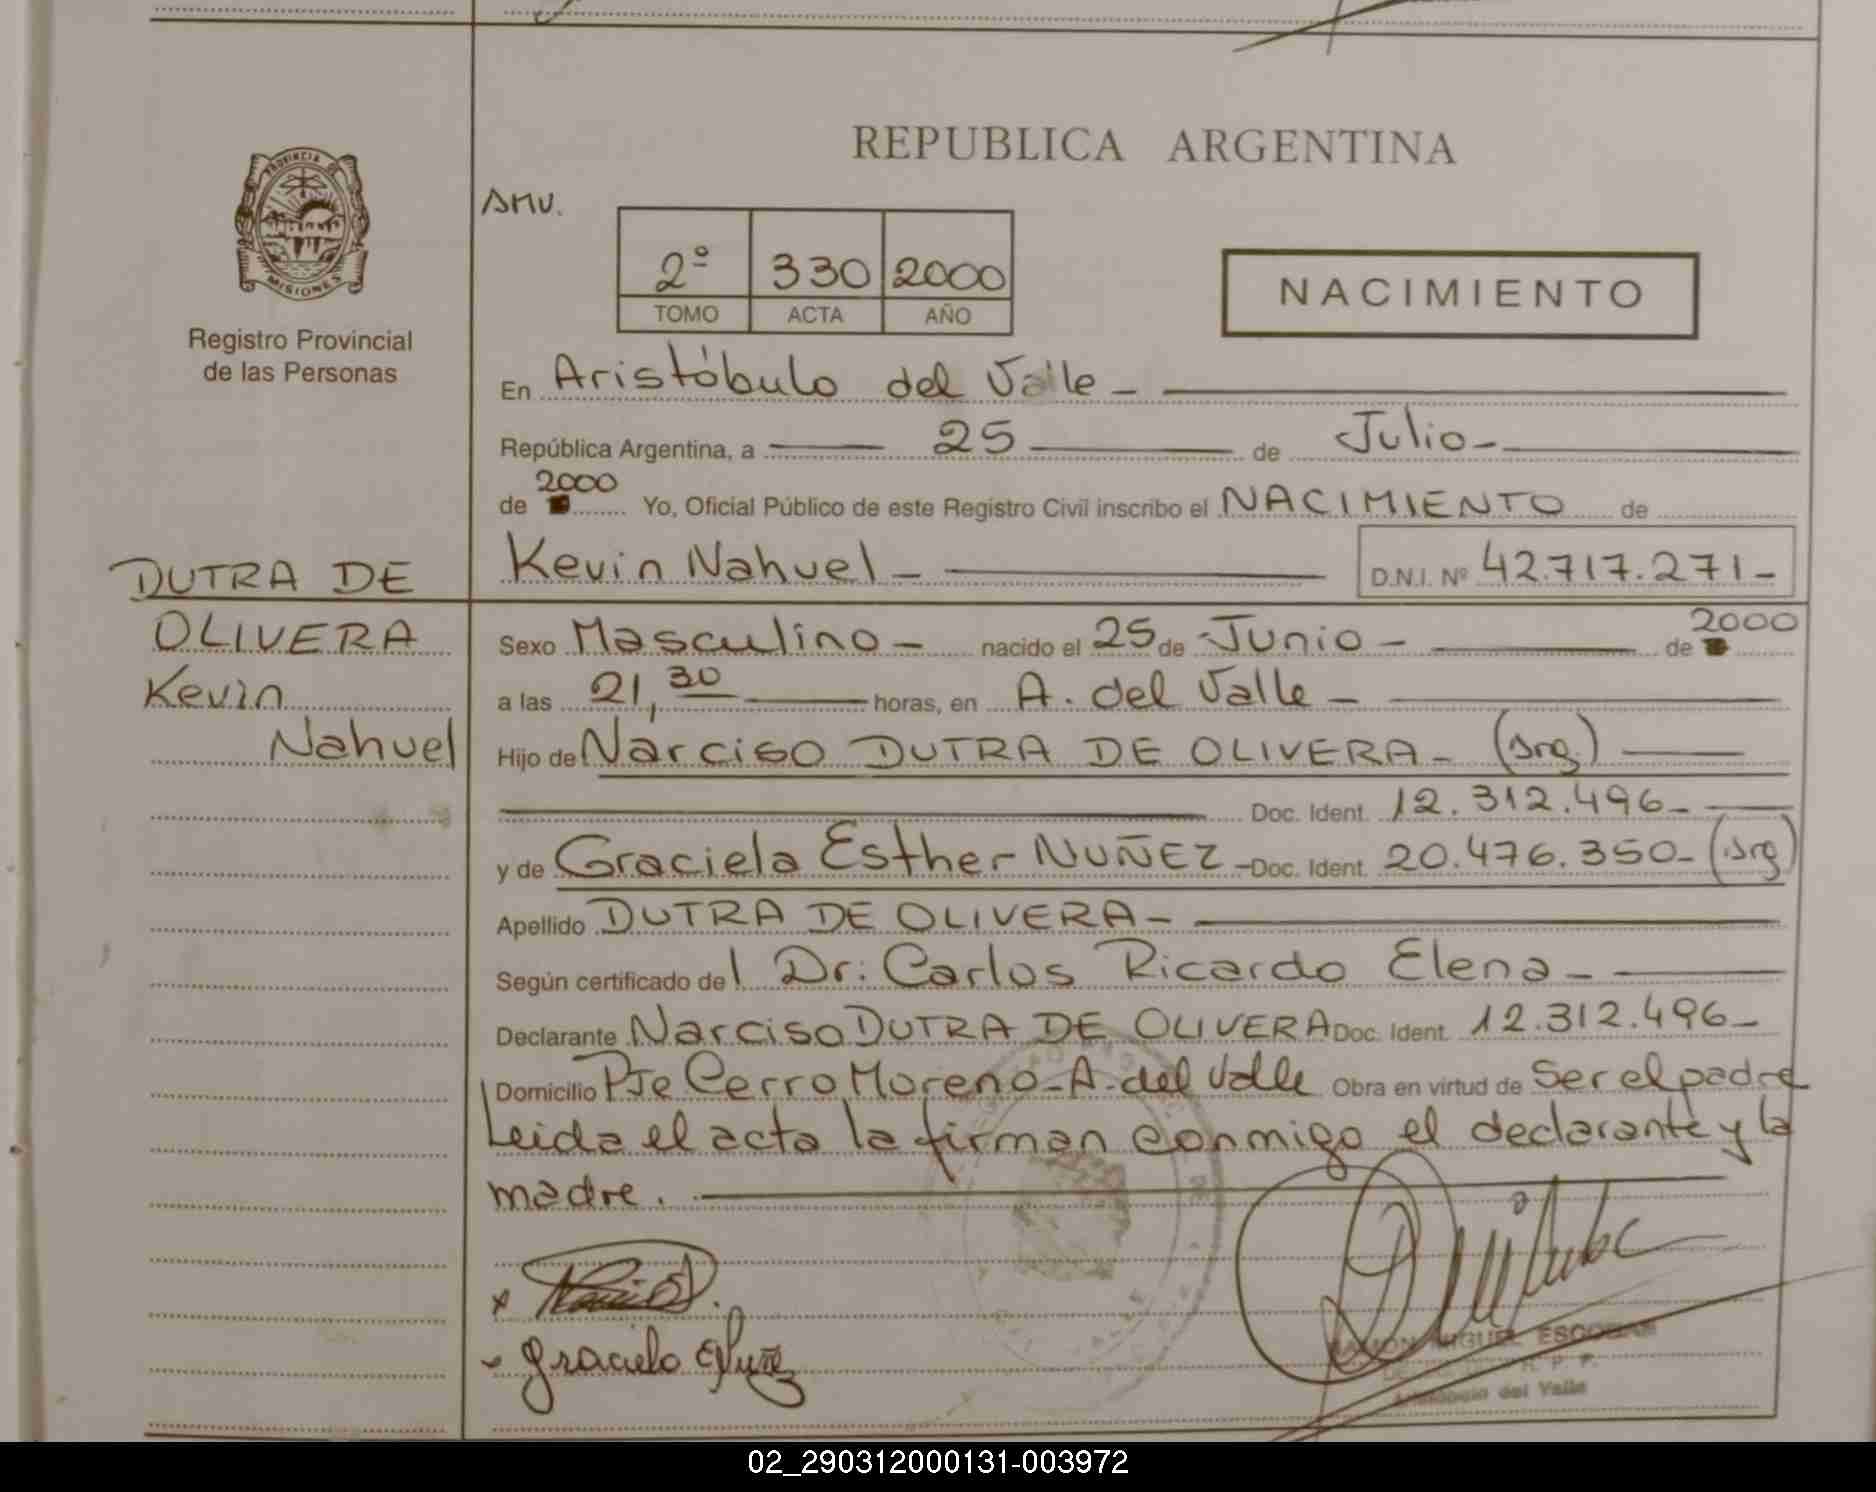 REPUBLICA ARGENTINA
PROVINCIA
MISIONES
Registro Provincial
de las Personas
2º 330 2000
TOMO ACTA AÑO
NACIMIENTO
En Aristóbulo del Valle -
República Argentina, a 25 de Julio -
de 2000 Yo, Oficial Público de este Registro Civil inscribo el NACIMIENTO de
Kevin Nahuel - D.N.I. Nº 42.717.271-
DUTRA DE
OLIVERA
Kevin
Nahuel
Sexo Masculino - nacido el 25 de Junio - de 2000
a las 21,30 horas, en A. del Valle -
Hijo de Narciso DUTRA DE OLIVERA - (Arg.)
Doc. Ident. 12.312.496-
y de Graciela Esther NUÑEZ - Doc. Ident. 20.476.350- (Arg)
Apellido DUTRA DE OLIVERA -
Según certificado del Dr: Carlos Ricardo Elena -
Declarante Narciso DUTRA DE OLIVERA Doc. Ident. 12.312.496-
Domicilio Pje Cerro Moreno - A. del Valle Obra en virtud de ser el padre
Leida el acta la firman conmigo el declarante y la
madre.
Graciela E Nuñez
RAMON MIGUEL ESCOBAR
Aristobulo del Valle
02_290312000131-003972